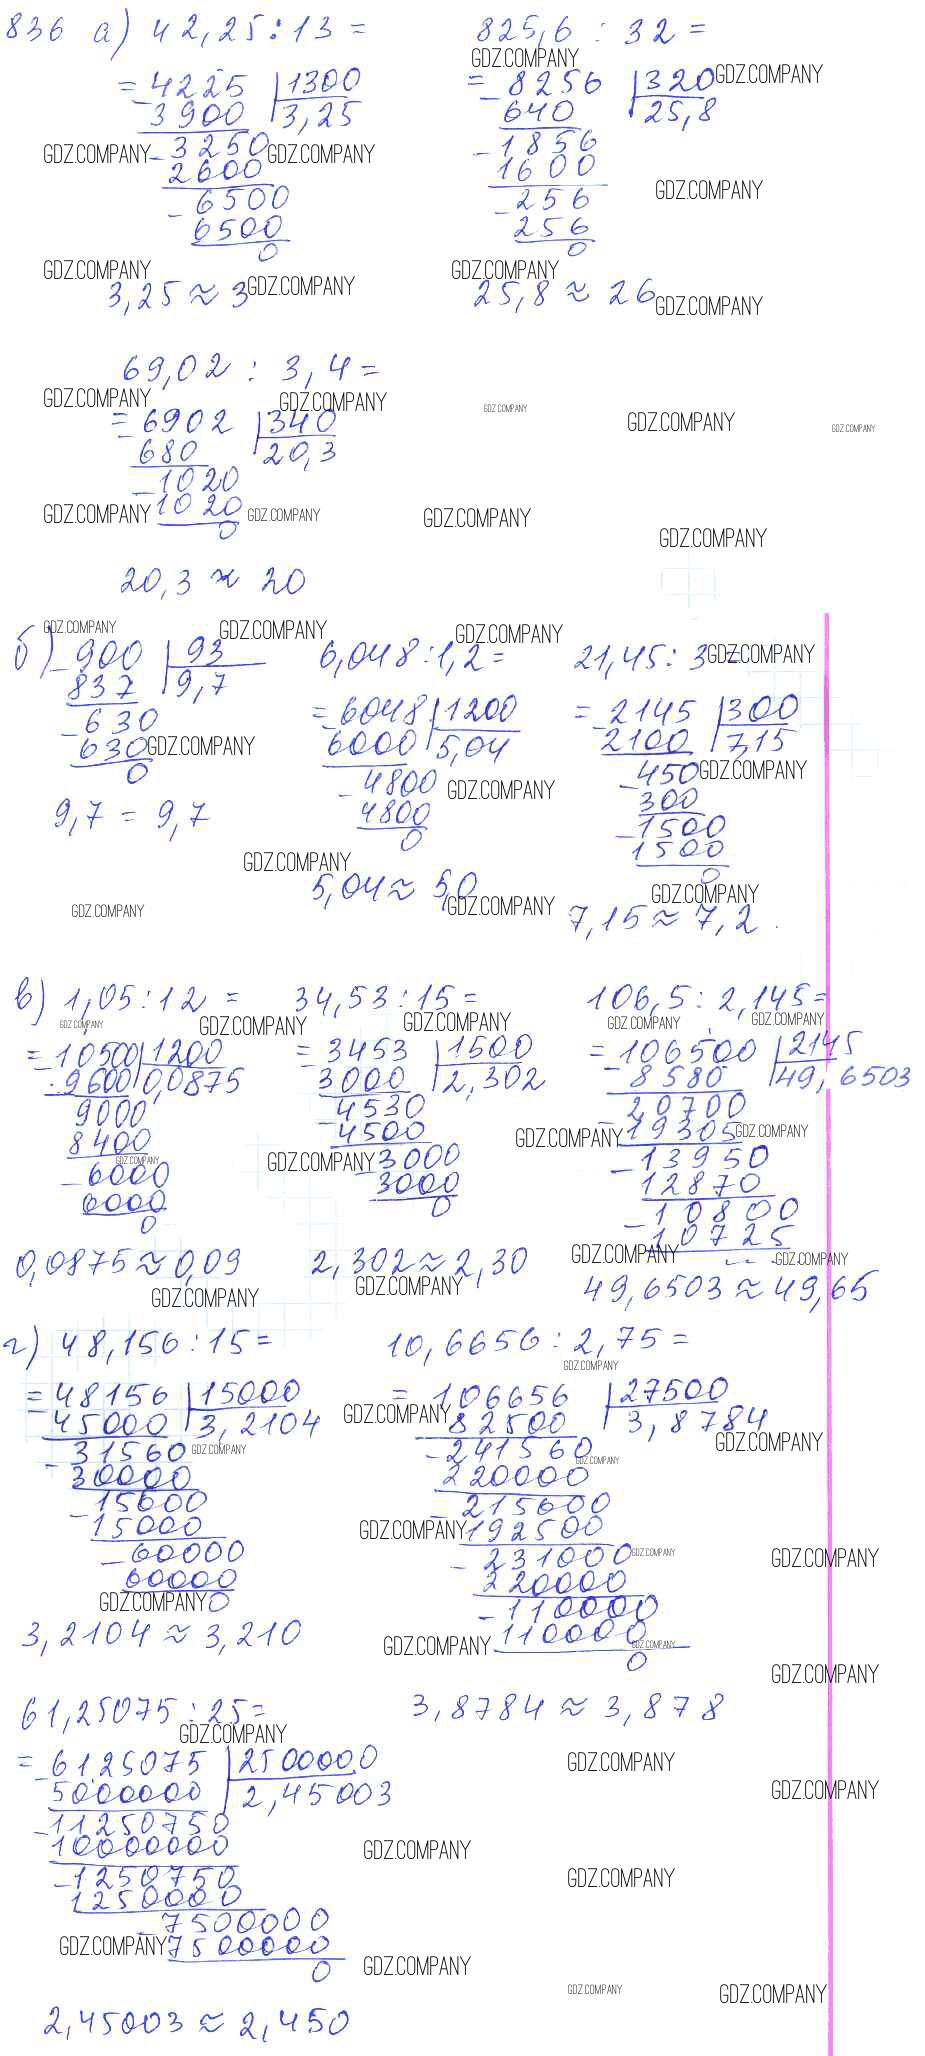 836 а) 42,25:13 =
= 4225 | 1300
3900 | 3,25
3250
2600
6500
6500
0
3,25 ≈ 3
825,6 : 32 =
= 8256 | 320
640 | 25,8
1856
1600
256
256
0
25,8 ≈ 26
69,02 : 3,4 =
= 6902 | 340
680 | 20,3
1020
1020
0
20,3 ≈ 20
б) 900 | 93
837 | 9,7
630
630
0
9,7 = 9,7
6,048 : 1,2 =
= 6048 | 1200
6000 | 5,04
4800
4800
0
5,04 ≈ 5,0
21,45 : 3 =
= 2145 | 300
2100 | 7,15
450
300
1500
1500
0
7,15 ≈ 7,2
в) 1,05 : 12 =
= 10500 | 1200
9600 | 0,0875
9000
8400
6000
6000
0
0,0875 ≈ 0,09
34,53 : 15 =
= 3453 | 1500
3000 | 2,302
4530
4500
3000
3000
0
2,302 ≈ 2,30
106,5 : 2,145 =
= 106500 | 2145
8580 | 49,6503
20700
19305
13950
12870
10800
10725
49,6503 ≈ 49,65
г) 48,156 : 15 =
= 48156 | 15000
45000 | 3,2104
31560
30000
15600
15000
60000
60000
0
3,2104 ≈ 3,210
10,6656 : 2,75 =
= 106656 | 27500
82500 | 3,8784
241560
220000
215600
192500
231000
220000
110000
110000
0
3,8784 ≈ 3,878
61,25075 : 25 =
= 6125075 | 2500000
5000000 | 2,45003
11250750
10000000
1250750
1250000
7500000
7500000
0
2,45003 ≈ 2,450
GDZ.COMPANY